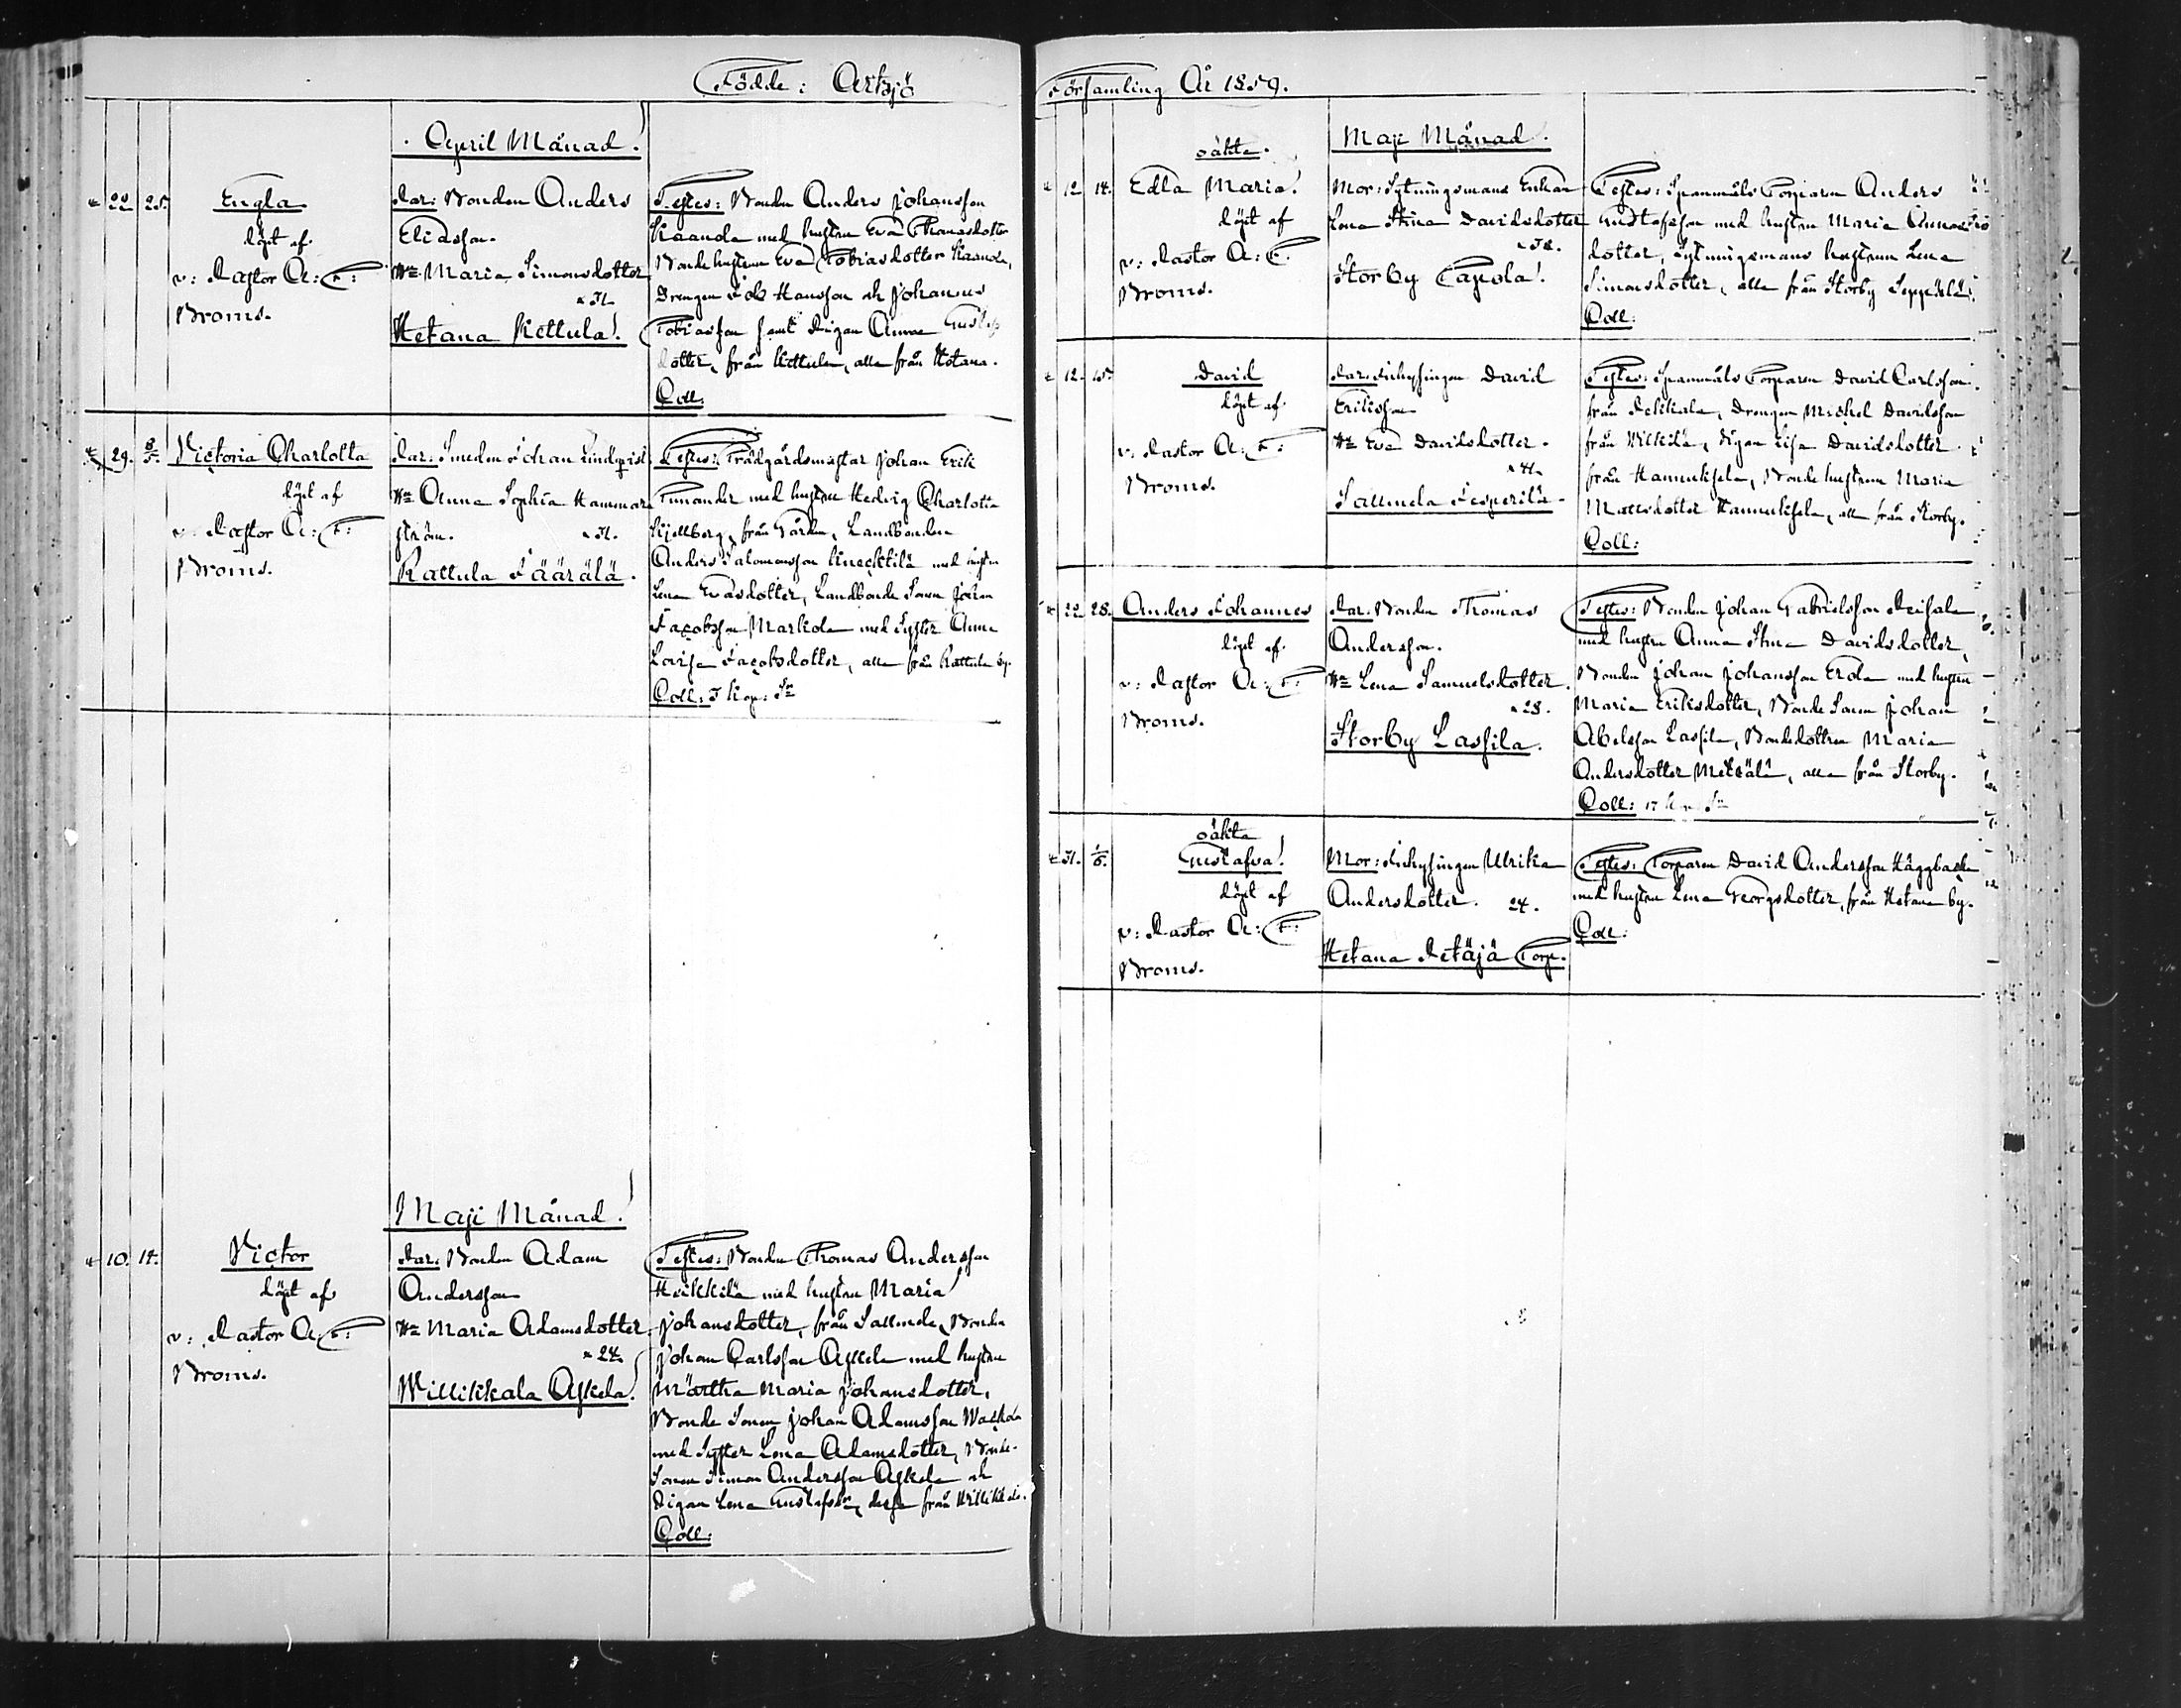 Födde i Artsjö
April Månad.
22 25.
Engla
döpt af
v: Pastor A: F:
Broms.
Par: Bonden Anders
Eliasson.
Hu Maria Simonsdotter
31.
Hetana Kettula.
Testes: Bonden Anders Johansson
Kaanda med hustru Eva Thomasdotter
Bondehustrun Eva Tobiasdotter Kaanda,
Drengen Job Hansson och Johannes
Tobiasson samt Pigan Anna Gustafs
dotter, från Kettula, alla från Hetana.
Coll:
29. 8/5.
Victoria Charlotta
döpt af
v: Pastor A: F:
Broms.
Par: Smeden Johan Lindqvist
Hu Anna Sophia Hammar
ström. 31.
Rattula Jäärälä.
Testes: Trädgårdsmästar Johan Erik
med hustru Hedvig Charlotta
Kjellberg, från Gården, Landbonden
Anders Salomonsson Knecktilä med hustru
Lena Evasdotter, Landbonde Sonen Johan
Jacobsson Markola med Syster Anna
Lovisa Jacobsdotter, alla från Rattula by.
Coll: 3 Kop: Sr
Maji Månad.
10. 14.
Victor
döpt af
v: Pastor A: F:
Broms.
Par: Bonden Adam
Andersson
Hu Maria Adamsdotter.
24.
Willikkala Askela.
Testes: Bonden Thomas Andersson
Heikkilä med hustru Maria
Johansdotter, från Salmela, Bonden
Johan Carlsson Askela med hustru
Märtha Maria Johansdotter,
Bonde Sonen Johan Adamsson
med Syster Lena Adamsdotter, Bonde-
Sonen Simon Andersson Askela och
Pigan Lena Gustafsdr, dessa från Willikkala.
Coll:
Församling År 1859.
Maji Månad.
12 14.
oäkta.
Edla Maria.
döpt af
v: Pastor A: F.
Broms.
Mor: Sytningsmans Enkan
Lena Stina Davidsdotter
38.
Storby Tapola.
Testes: Spanmåls Torparen Anders
Gustafsson med hustru Maria Annas
dotter, Sytningsmans hustrun Lena
Simonsdotter, alla från Storby Seppälä.
Coll:
12. 15.
David
döpt af
v: Pastor A: F:
Broms.
Par: Inhysingen David
Eriksson
Hu Eva Davidsdotter.
41.
Sallmela Jesperilä.
Testes: Spanmåls Torparen David Carlsson
från Pekkala, Drengen Michel Davidsson
från Mikkilä, Pigan Lisa Davidsdotter
från Hannuksela, Bonde hustrun Maria
Mattsdotter Hannuksela, alla från Storby.
Coll:
22. 28.
Anders Johannes
döpt af
v: Pastor A: F:
Broms.
Par: Bonden Thomas
Andersson.
Hu Lena Samuelsdotter.
28.
Storby Lassila.
Testes: Bonden Johan Gabrielsson
med hustru Anna Stina Davidsdotter,
Bonden Johan Johansson Erola med hustru
Maria Eriksdotter, Bonde Sonen Johan
Abelsson Lassila, Bondedottren Maria
Andersdotter Metsälä, alla från Storby.
Coll: 17 Kop Sr
31. 1/6.
oäkta
Gustafva.
döpt af
v: Pastor A: F:
Broms.
Mor: Inhysingen Ulrika
Andersdotter. 24.
Hetana Petäjä Torp.
Testes: Torparen David Andersson Häggbacka
med hustru Lena Georgsdotter, från Hetana by.
Coll: